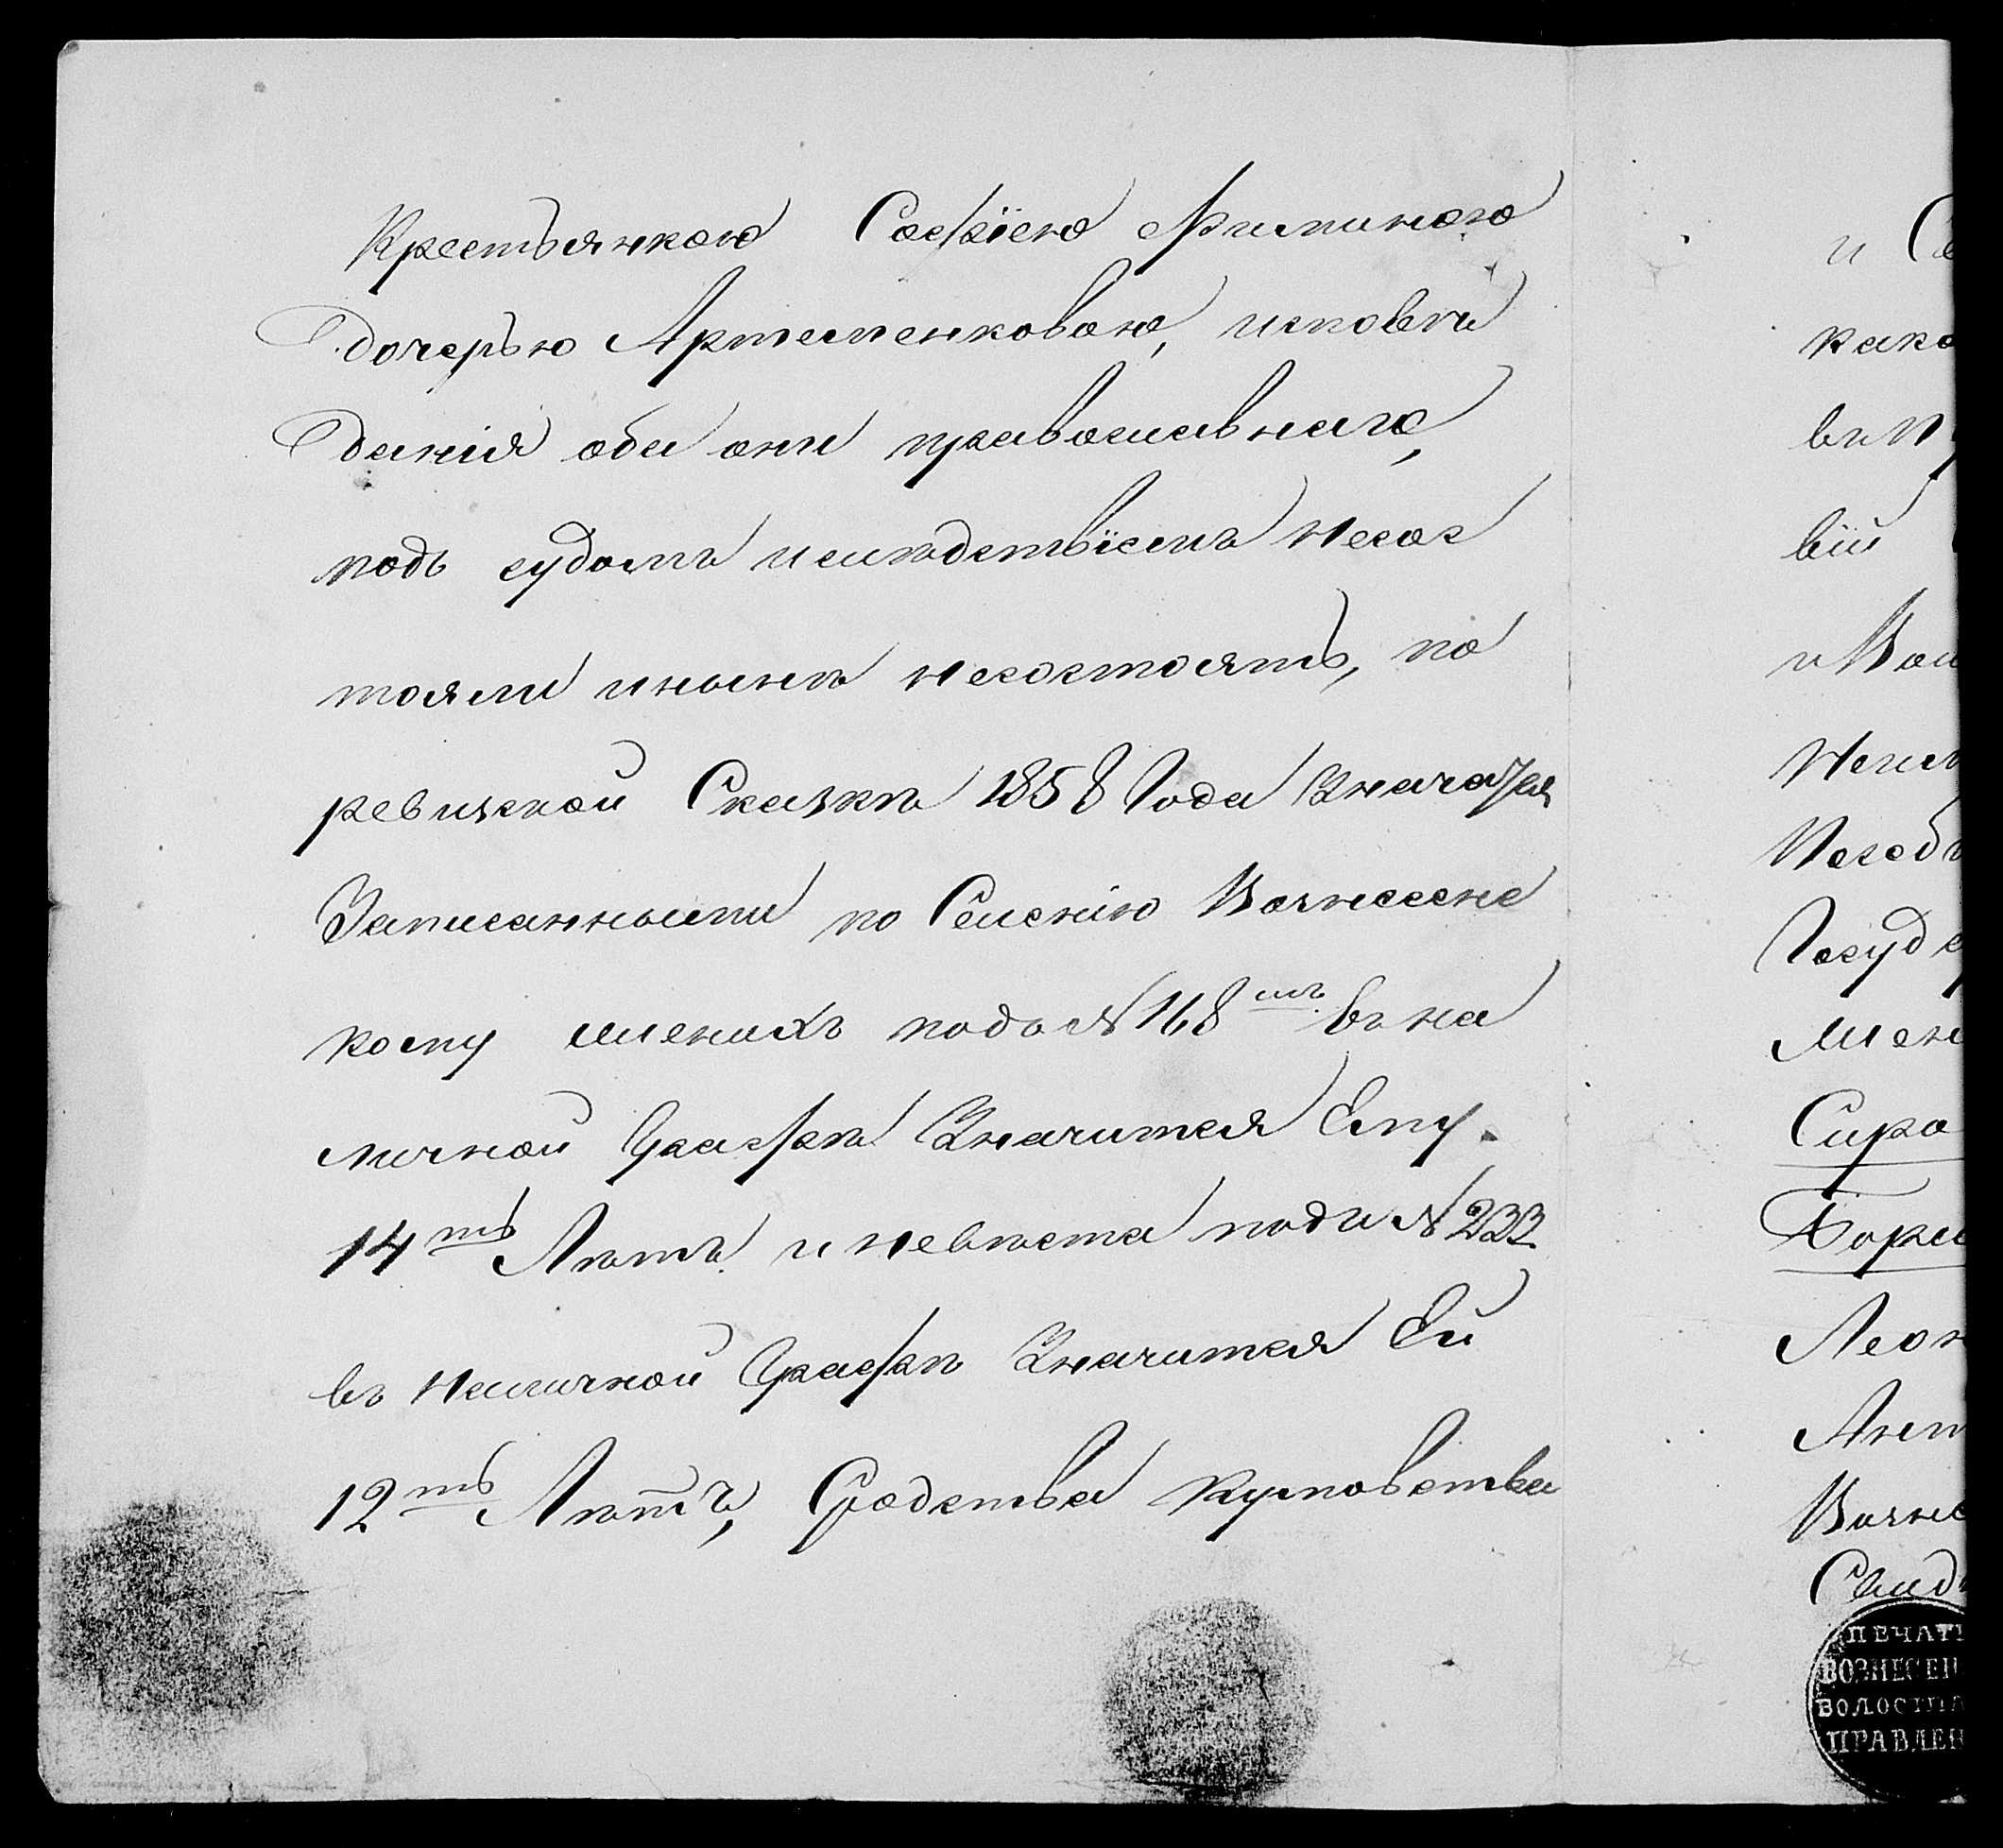 Крестьянкою Софіею Филиповою
дочерью Артеменковою, исповѣ
данія оба они православнаго,
подъ судомъ ислѣдствіемъ несос
тояли инынѣ несостоятъ, по
ревизской Сказкѣ 1858 Года Значатся
Записанными по Селенію Вознесенс
кому женихъ подъ № 168мъ въ на
личной Графѣ Значится Ему
14ть Лѣтъ и невѣста подъ № 233
въ наличной Графѣ Значится Ей
12ть Лѣтъ, Сродства кумовства
и Св
како
въ п
вій
и Вол
Неим
Посеѣ
Госуд
Мен
Сиро
Бори
Леон
Ант
Возне
Свид
ПЕЧАТ
ВОЗНЕСЕН
ВОЛОСТНА
ПРАВЛЕН